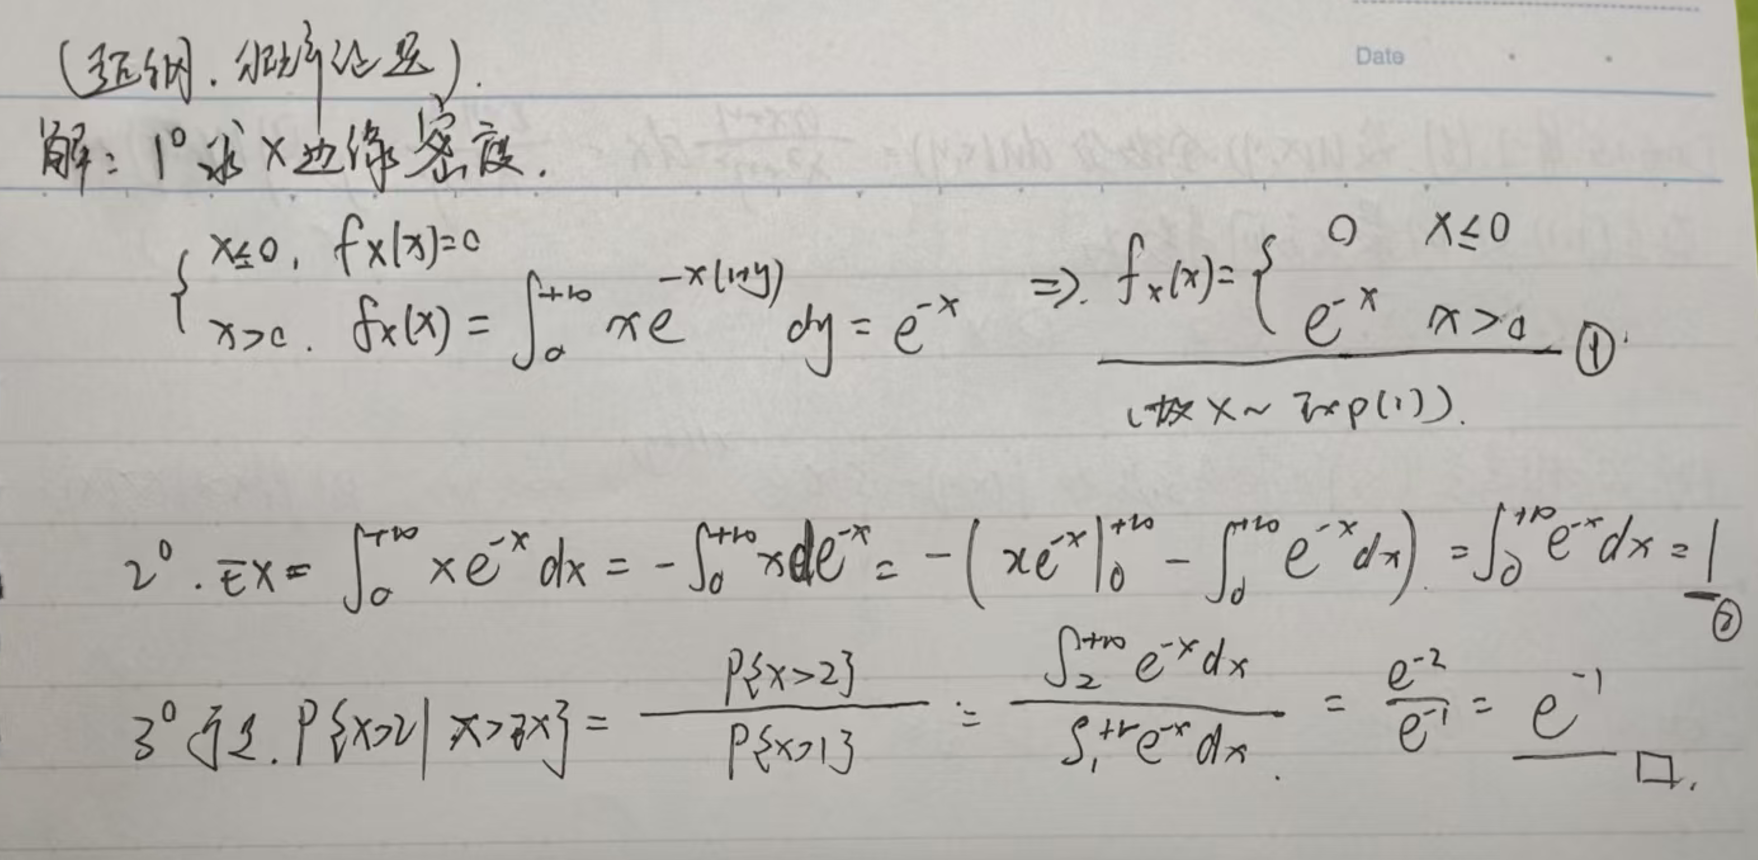 Date
(超纲.概率论题).
解: 1° 求X边缘密度.
{ x≤0, f_X(x)=0
x>0. f_X(x) = ∫_0^{+∞} x e^{-x(1+y)} dy = e^{-x} ⇒. f_X(x)= { 0 x≤0
e^{-x} x>0 ①
(故 X ~ Exp(1)).
2°. EX = ∫_0^{+∞} x e^{-x} dx = -∫_0^{+∞} x de^{-x} = -( x e^{-x} |_0^{+∞} - ∫_0^{+∞} e^{-x} dx ) = ∫_0^{+∞} e^{-x} dx = 1 ②
3° 于是. P{X>2 | X>EX} = P{X>2} / P{X>1} = ∫_2^{+∞} e^{-x} dx / ∫_1^{+∞} e^{-x} dx. = e^{-2} / e^{-1} = e^{-1} □.